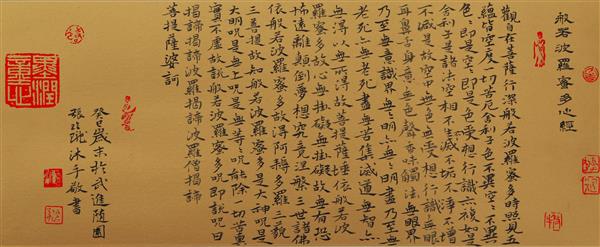 般若波羅蜜多心經
觀自在菩薩行深般若波羅蜜多時照見五
蘊皆空度一切苦厄舍利子色不異空空不異
色色即是空空即是色受想行識亦復如是
舍利子是諸法空相不生不滅不垢不淨不增
不減是故空中無色無受想行識無眼
耳鼻舌身意無色聲香味觸法無眼界
乃至無意識界無無明亦無無明盡乃至無
老死亦無老死盡無苦集滅道無智亦
無得以無所得故菩提薩埵依般若波
羅蜜多故心無掛礙無掛礙故無有恐
怖遠離顛倒夢想究竟涅槃三世諸佛
依般若波羅蜜多故得阿耨多羅三藐
三菩提故知般若波羅蜜多是大神咒是
大明咒是無上咒是無等等咒能除一切苦真
實不虛故說般若波羅蜜多咒即說咒曰
揭諦揭諦波羅揭諦波羅僧揭諦
菩提薩婆訶
癸巳歲末於武進隨園
張沐手敬書